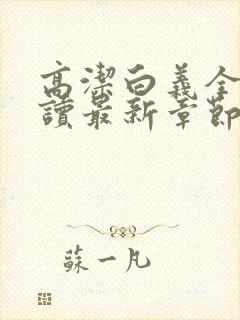 高潔白義全
讀最新章節
蘇一凡